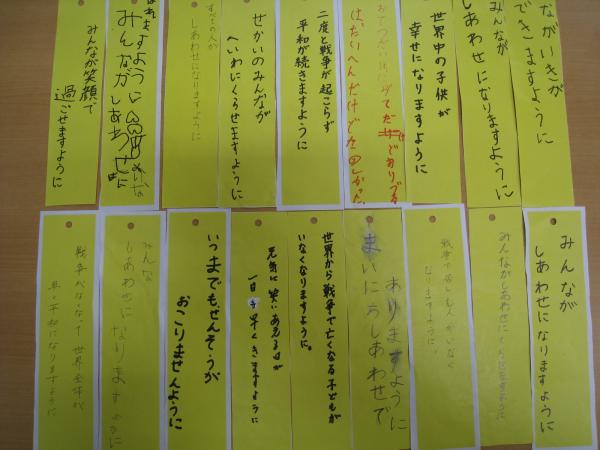 ながいきが
できますように
みんなが
しあわせになりますように
世界中の子供が
幸せになりますように
二度と戦争が起こらず
平和が続きますように
せかいのみんなが
へいわにくらせますように
すべての人が
しあわせになりますように
みんなが
しあわせに
みんなが笑顔で
過ごせますように
みんなが
しあわせになりますように
みんながしあわせに
戦争で苦しむ人がいなく
なりますように
ありますように
しあわせで
世界から戦争で亡くなる子どもが
いなくなりますように。
元気に笑いあえる日が
一日も早くきますように
いつまでも、せんそうが
おこりませんように
みんな
しあわせになりますように
戦争がなくなって世界全体が
平和になりますように